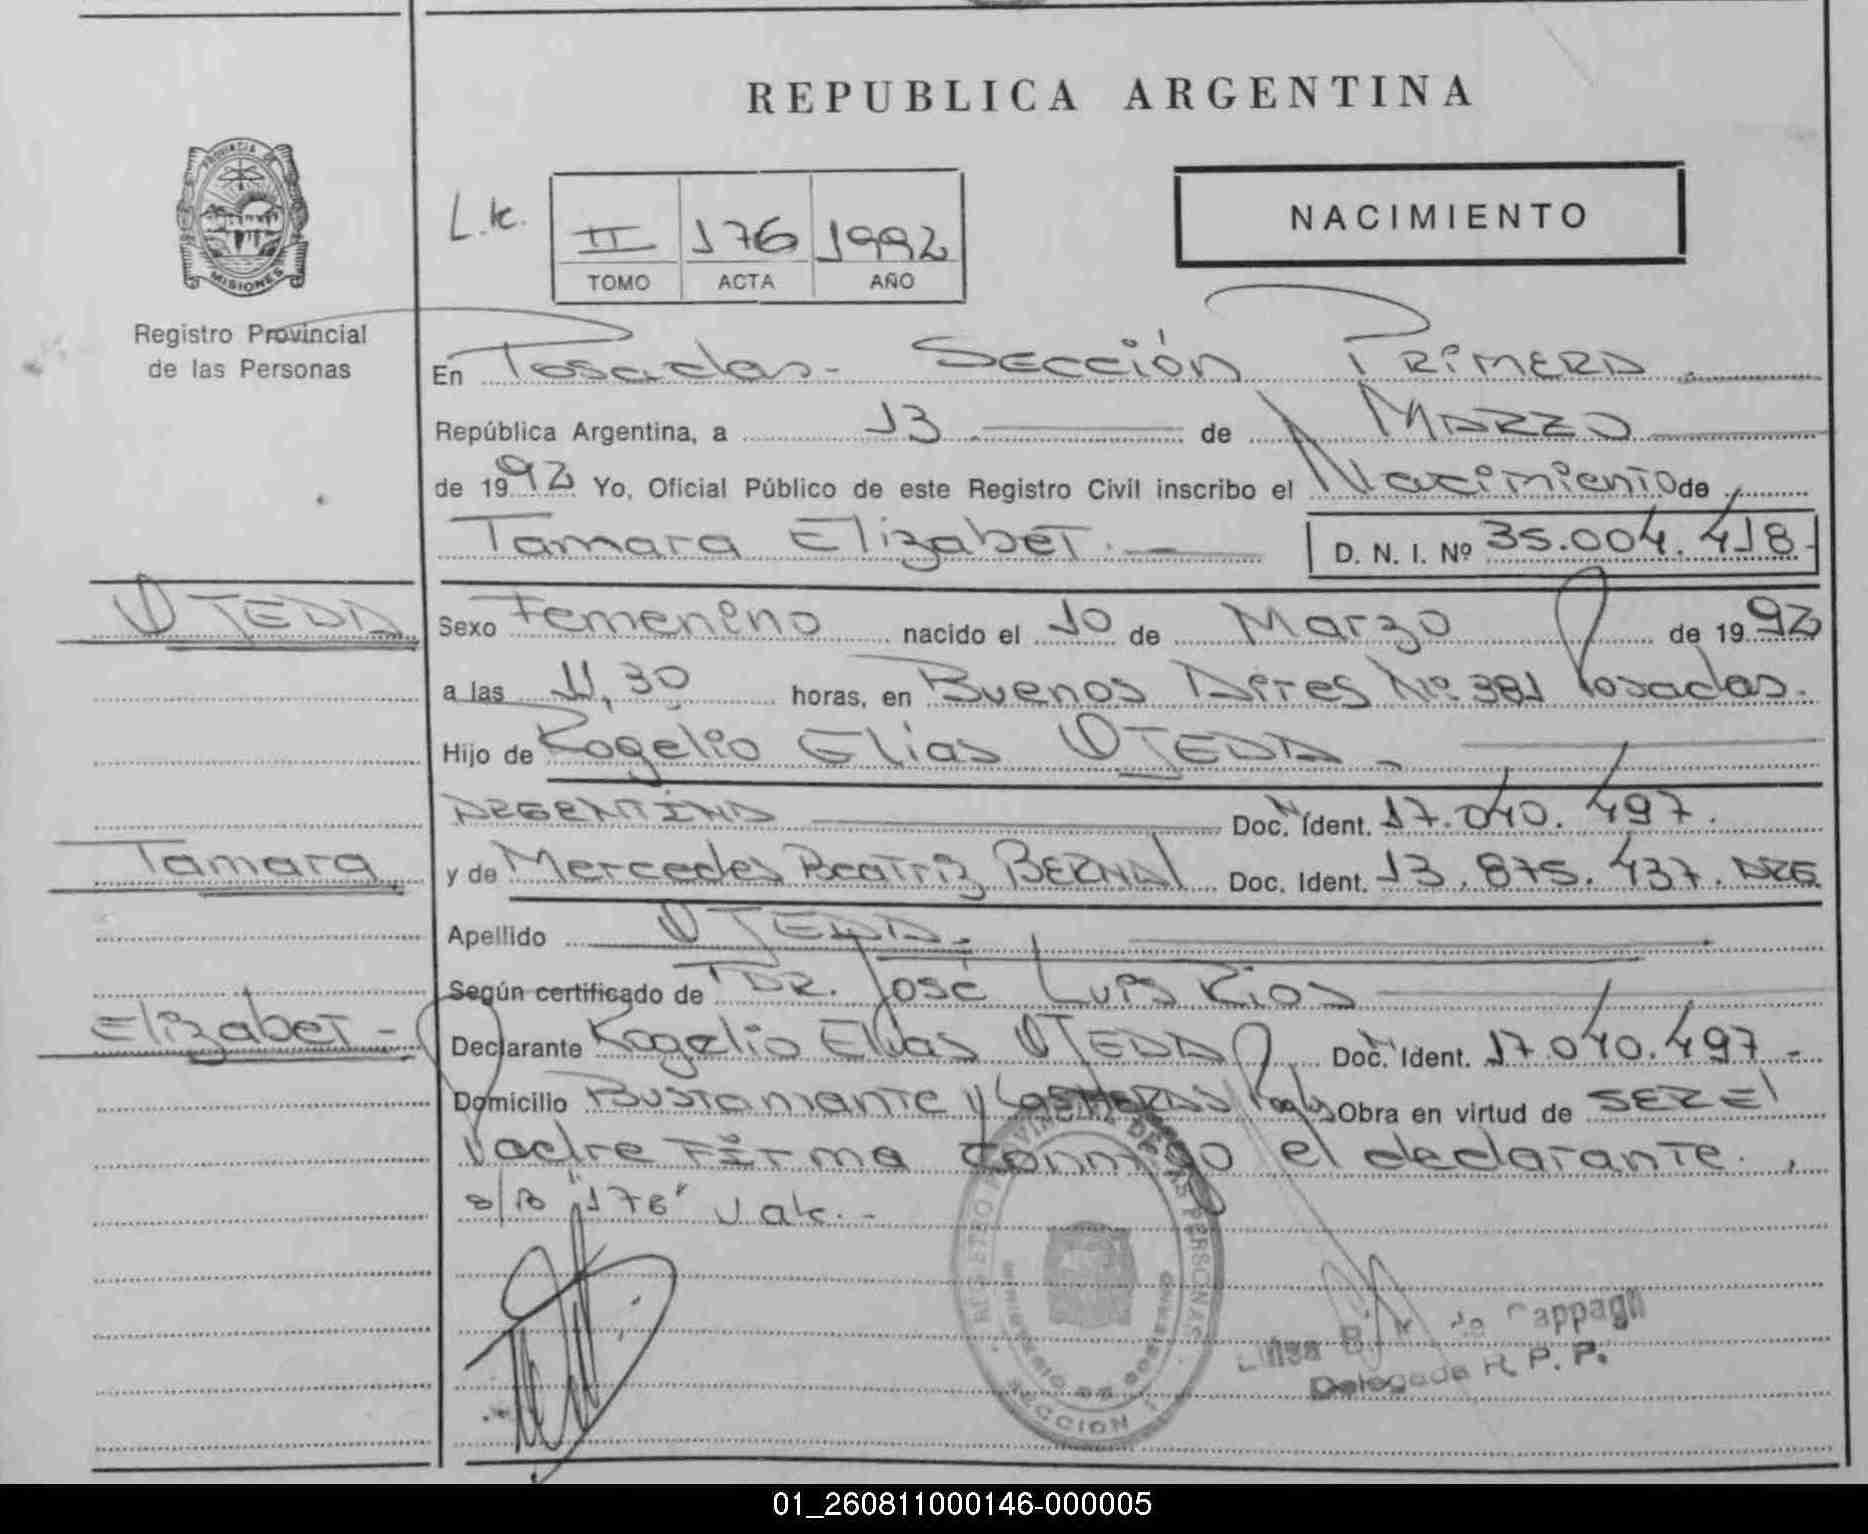 REPUBLICA ARGENTINA
PROVINCIA DE
MISIONES
Registro Provincial
de las Personas
II 176 1992
TOMO ACTA AÑO
NACIMIENTO
En Posadas - Sección Primera
República Argentina, a 13 de Marzo
de 1992 Yo, Oficial Público de este Registro Civil inscribo el Nacimiento de
Tamara Elizabet. D. N. I. Nº 35.004.418-
OJEDA
Sexo Femenino nacido el 10 de Marzo de 1992
a las 11,30 horas, en Buenos Aires Nº 381 Posadas.
Hijo de Rogelio Elias OJEDA
ARGENTINO Doc. Ident. 17.040.497.
Tamara
y de Mercedes Beatriz BERNAL Doc. Ident. 13.875.437. ARG.
Apellido OJEDA.-
Según certificado de DR. José Luis Rios
Elizabet -
Declarante Rogelio Elias OJEDA Doc. Ident. 17.040.497 -
Domicilio Bustamante y Las Heras Obra en virtud de SER El
Padre Firma conmigo el declarante.
s/B "176" vale.-
REGISTRO PROVINCIAL DE LAS PERSONAS
MINISTERIO DE GOBIERNO
SECCION 1
Cappagli
Delegada R. P. P.
01_260811000146-000005